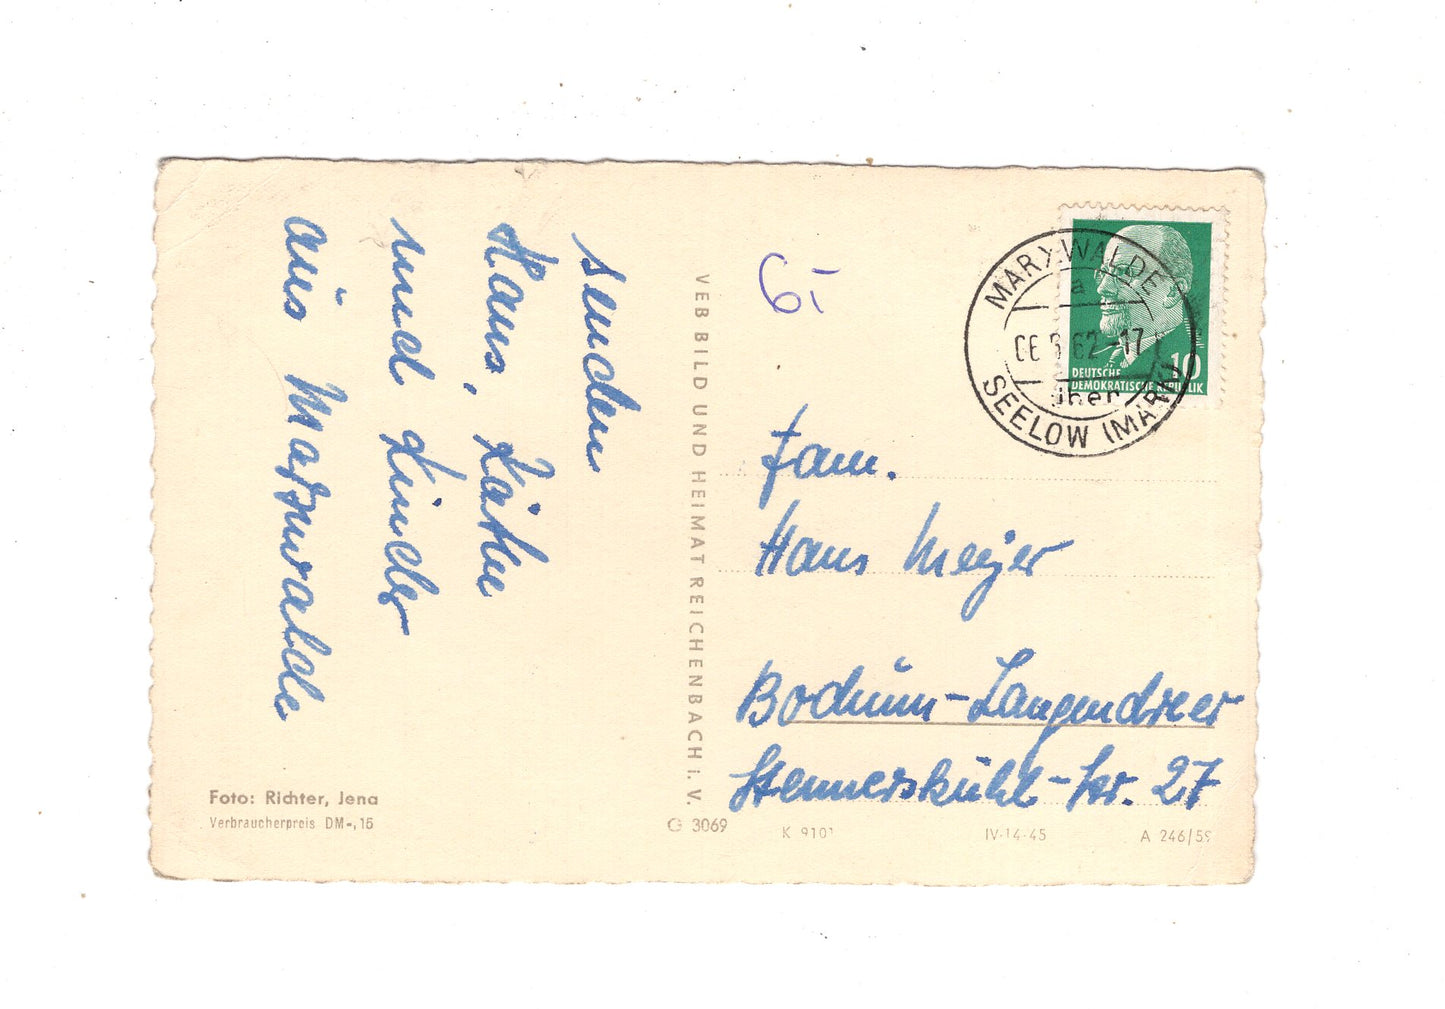 senden
Hans, Käthe
und Kinder
aus Marxwalde
Foto: Richter, Jena
Verbraucherpreis DM -,15
VEB BILD UND HEIMAT REICHENBACH i. V.
G 3069
MARXWALDE
a
62-17
über
SEELOW (MARK)
10
DEUTSCHE
DEMOKRATISCHE REPUBLIK
Fam.
Hans Meijer
Bochum-Langendreer
Stennerskuhle-Str. 27
K 9101
IV-14-45
A 246/59